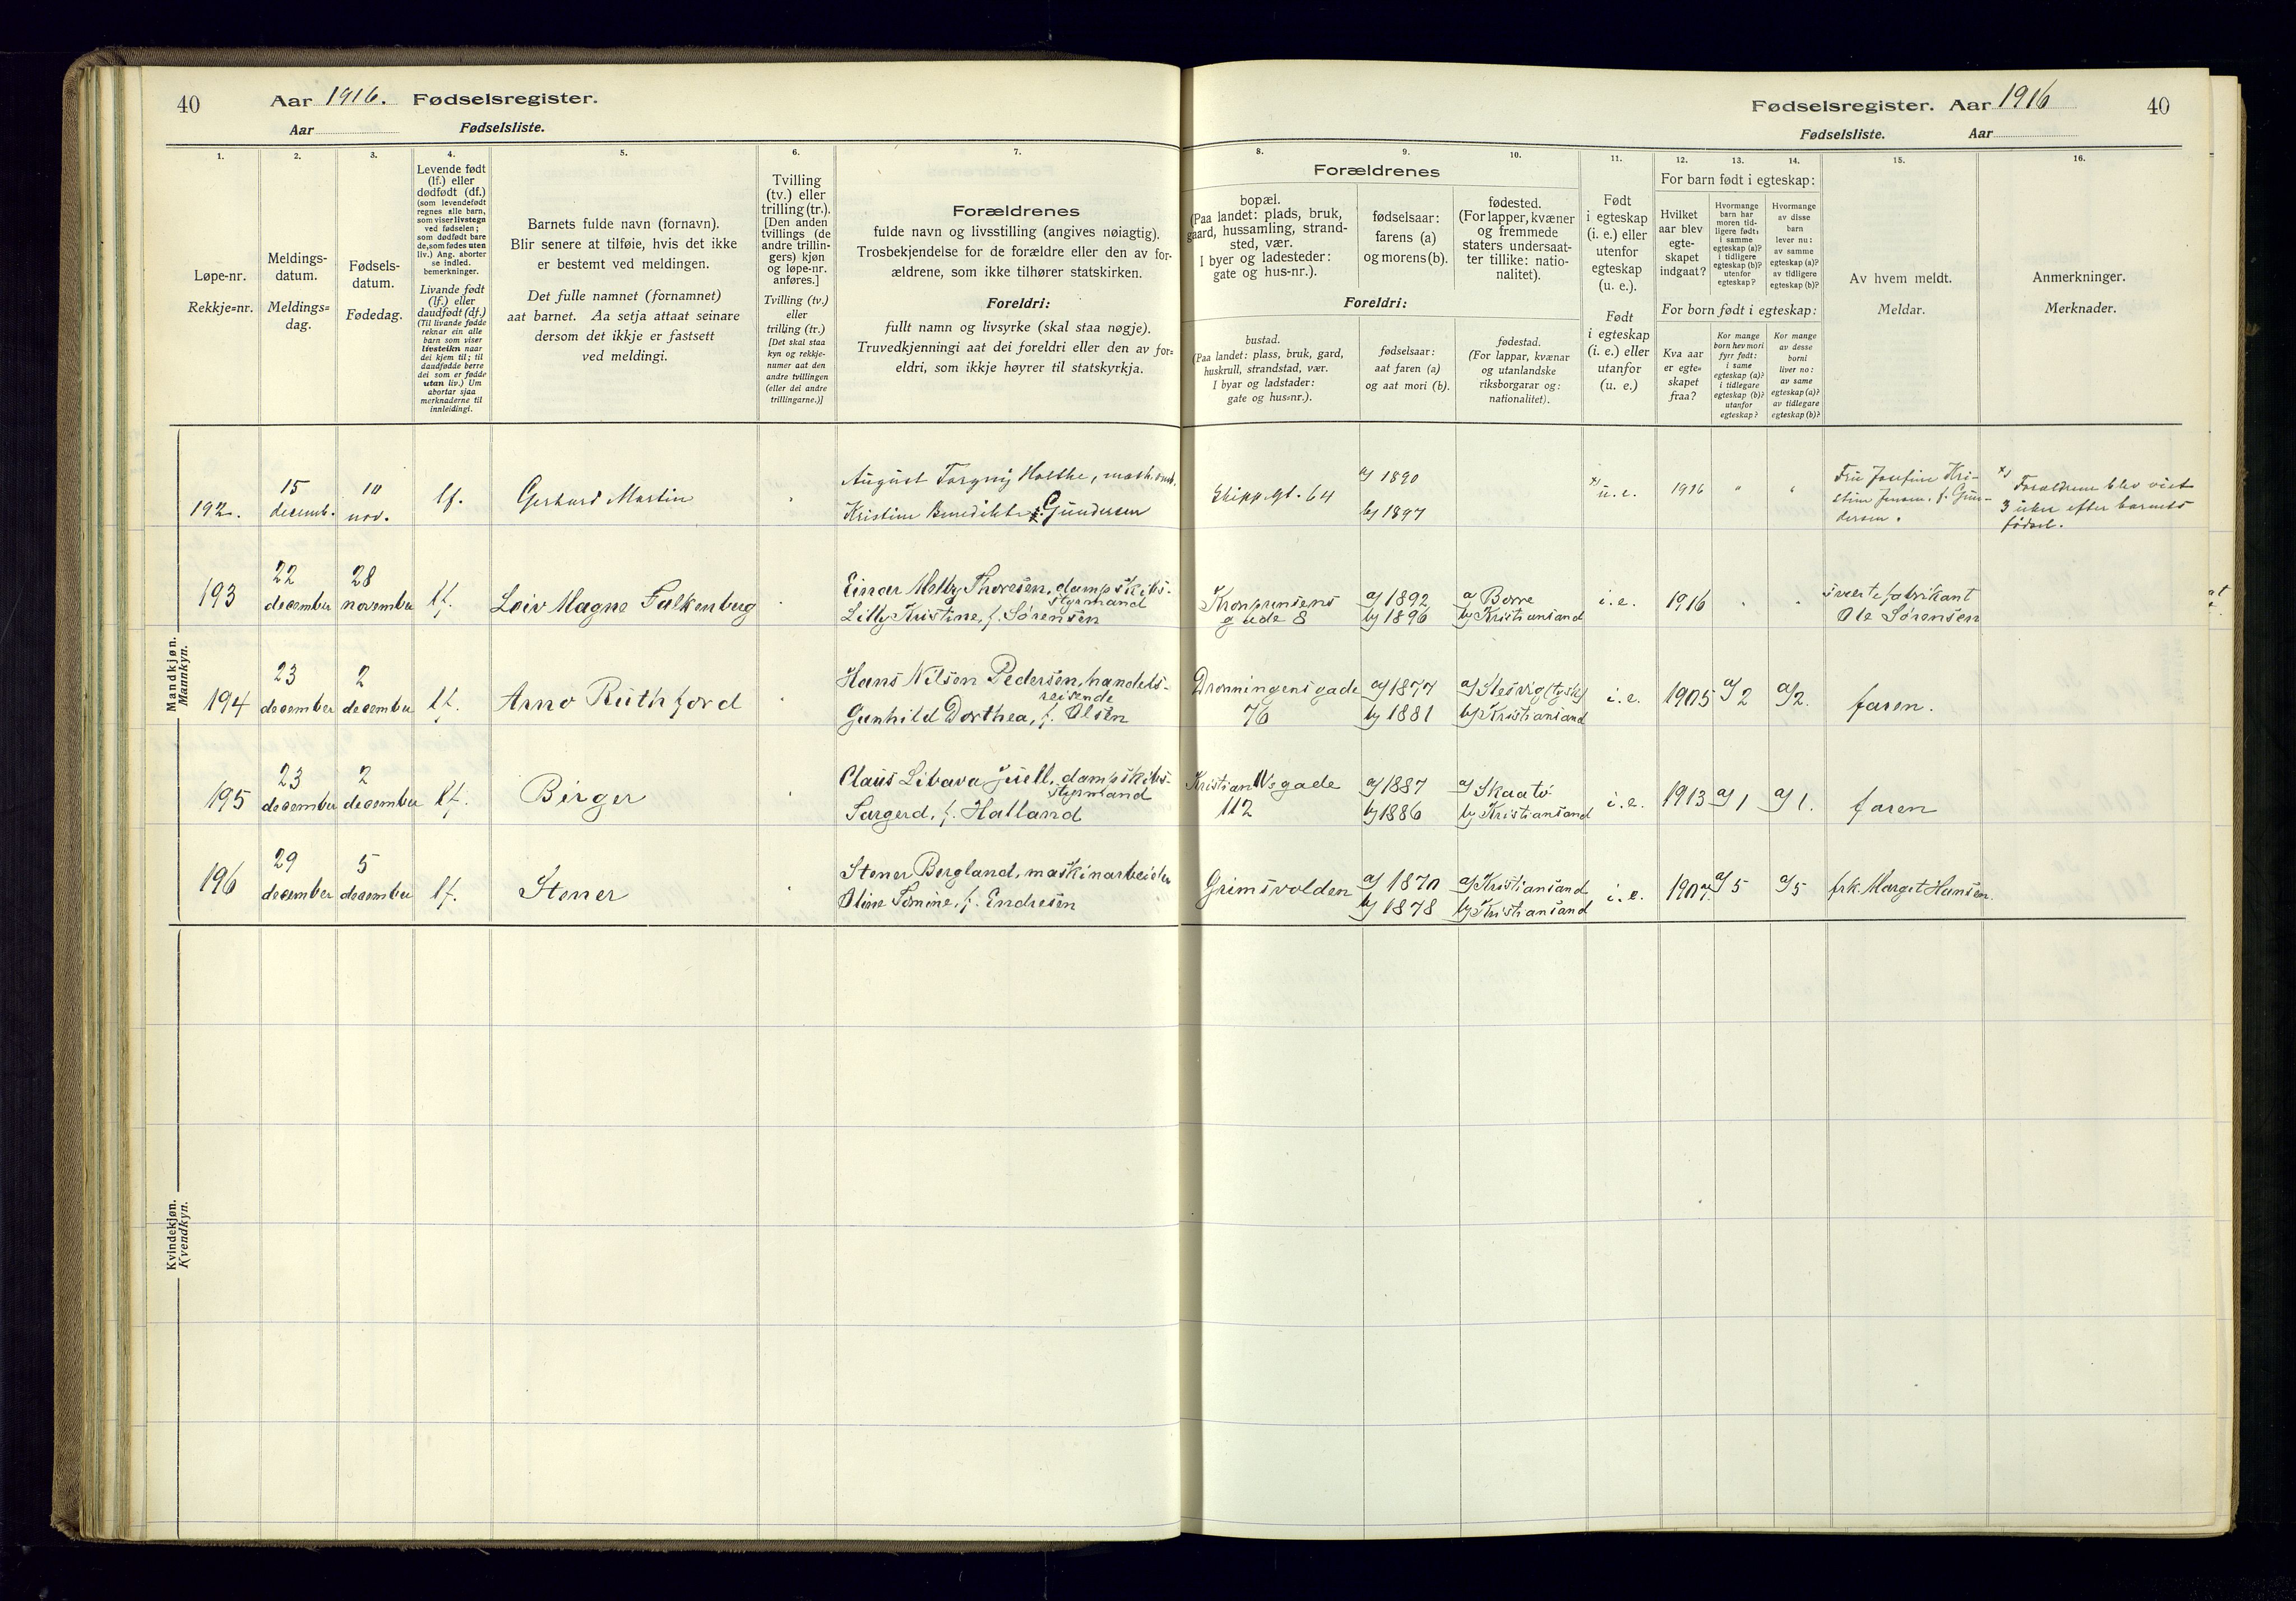 40 Aar 1916. Fødselsregister.
Aar Fødselsliste.
Fødselsregister. Aar 1916 40
Fødselsliste. Aar
1.
Løpe-nr.
Rekkje=nr.
2.
Meldings-
datum.
Meldings=
dag.
3.
Fødsels-
datum.
Fødedag.
4.
Levende født
(lf.) eller
dødfødt (df.)
(som levendefødt
regnes alle barn,
som viser livstegn
ved fødselen;
som dødfødt bare
de, som fødes uten
liv.) Ang. aborter
se indled.
bemerkninger.
Livande født
(lf.) eller
daudfødt (df.)
(Til livande fødde
reknar ein alle
barn som viser
livsteikn naar
dei kjem til; til
daudfødde berre
dei som er fødde
utan liv.) Um
abortar sjaa
merknaderne til
innleidingi.
5.
Barnets fulde navn (fornavn).
Blir senere at tilføie, hvis det ikke
er bestemt ved meldingen.
Det fulle namnet (fornamnet)
aat barnet. Aa setja attaat seinare
dersom det ikkje er fastsett
ved meldingi.
6.
Tvilling
(tv.) eller
trilling (tr.).
[Den anden
tvillings (de
andre trillin-
gers) kjøn
og løpe-nr.
anføres.]
Tvilling (tv.)
eller
trilling (tr.)
[Det skal staa
kyn og rekkje-
numer aat den
andre tvillingen
(eller dei andre
trillingarne.)]
7.
Forældrenes
fulde navn og livsstilling (angives nøiagtig).
Trosbekjendelse for de forældre eller den av for-
ældrene, som ikke tilhører statskirken.
Foreldri:
fullt namn og livsyrke (skal staa nøgje).
Truvedkjenningi aat dei foreldri eller den av for=
eldri, som ikkje høyrer til statskyrkja.
Forældrenes
8.
bopæl.
(Paa landet: plads, bruk,
gaard, hussamling, strand-
sted, vær.
I byer og ladesteder:
gate og hus-nr.).
9.
fødselsaar:
farens (a)
og morens (b).
10.
fødested.
(For lapper, kvæner
og fremmede
staters undersaat-
ter tillike: natio-
nalitet).
Foreldri:
bustad.
(Paa landet: plass, bruk, gard,
huskrull, strandstad, vær.
I byar og ladstader:
gate og hus=nr.).
fødselsaar:
aat faren (a)
og aat mori (b).
fødestad.
(For lappar, kvænar
og utanlandske
riksborgarar og:
nationalitet).
11.
Født
i egteskap
(i. e.) eller
utenfor
egteskap
(u. e.).
Født
i egteskap
(i. e.) eller
utanfor
(u. e.)
12. 13. 14.
For barn født i egteskap:
Hvilket
aar blev
egte-
skapet
indgaat?
Hvormange
barn har
moren tid-
ligere født:
i samme
egteskap (a)?
i tidligere
egteskap (b)?
utenfor
egteskap?
Hvormange
av disse
barn
lever nu:
av samme
egteskap (a)?
av tidligere
egteskap (b)?
For born født i egteskap:
Kva aar
er egte=
skapet
fraa?
Kor mange
born hev mori
fyrr født:
i same
egteskap (a)?
i tidlegare
egteskap (b)?
utanfor
egteskap?
Kor mange
av desse
borni
liver no:
av same
egteskap (a)?
av tidlegare
egteskap (b)?
15.
Av hvem meldt.
Meldar.
16.
Anmerkninger.
Merknader.
Mandkjøn.
Mannkyn.
192. 15 decemb. 10 nov. lf. Gerhard Martin
August Torgny Holthe,
Kristine Benedikte f. Gundersen
Skipp.gt. 64 a) 1890
b) 1897
x) u.e. 1916 " "
Fru Josefine Kri-
stine Jensen, f. Gun-
dersen.
x) Forældrene blev viet
3 uker efter barnets
fødsel.
193 22 december 28 november lf. Leiv Magne Falkenberg
Einar Melby Thoresen, dampskibs-
styrmand
Lilly Kristine, f. Sørensen
Kronprinsens
gade 8
a) 1892
b) 1896
a) Borre
b) Kristiansand
i.e. 1916
svertefabrikant
Ole Sørensen
194 23 december 2 december lf. Arno Ruthford
Hans Nilsen Pedersen, handels-
reisende
Gunhild Dorthea, f. Olsen
Dronningens gade
76
a) 1877
b) 1881
a) Slesvig (tysk)
b) Kristiansand
i.e. 1905 a) 2 a) 2. faren.
195 23 december 2 december lf. Birger
Claus Libava Juell, dampskibs-
styrmand
Sargerd, f. Halland
Kristian IVs gade
112
a) 1887
b) 1886
a) Skaatö
b) Kristiansand
i.e. 1913 a) 1 a) 1. faren
196 29 december 5 december lf. Stener
Stener Bergland, maskinarbeider
Oline Tomine, f. Endresen
Grimsvolden
a) 1870
b) 1878
a) Kristiansand
b) Kristiansand
i.e. a) 5 a) 5 frk. Margit Hansen.
Kvindekjøn.
Kvendkyn.